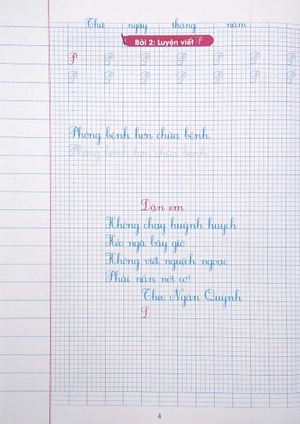 Thứ ngày tháng năm
Bài 2: Luyện viết P
P P P P P P P
P P P P P P P
Phòng bệnh hơn chữa bệnh.
Phòng bệnh hơn chữa bệnh.
Dặn em
Không chạy huỳnh huỵch
Kẻo ngã bây giờ
Không viết nguệch ngoạc
Phải nắn nót cơ!
Theo Ngân Quỳnh
P
4